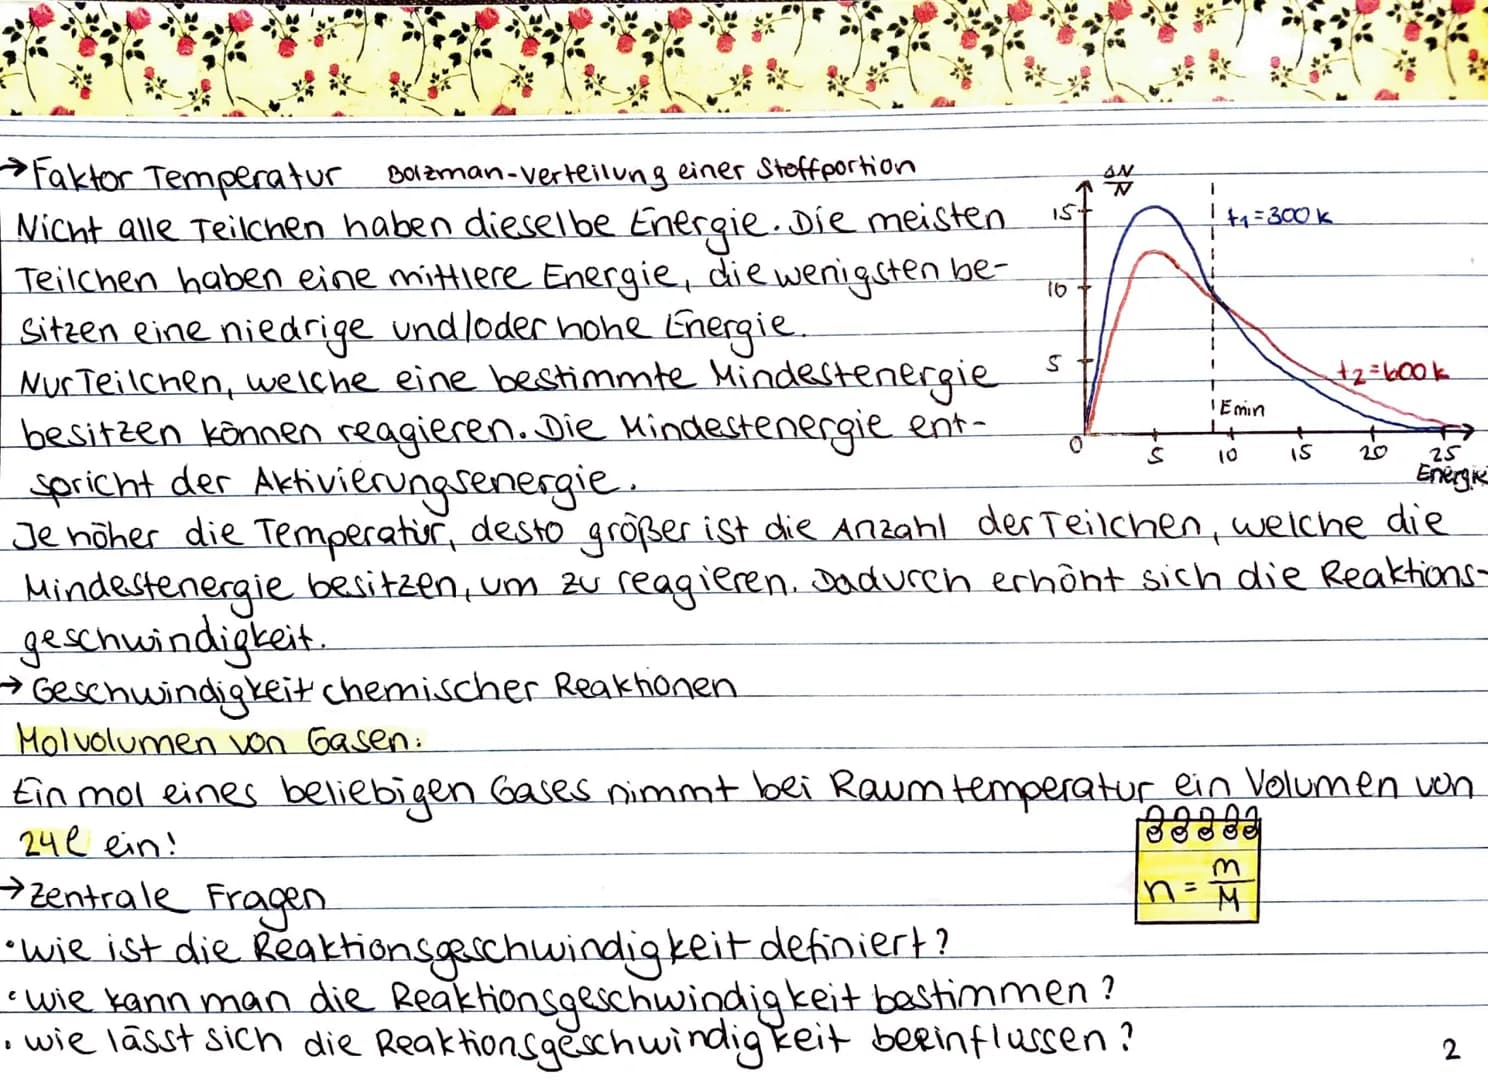 → Faktor Temperatur Bolzman-Verteilung einer Stoffportion
Nicht alle Teilchen haben dieselbe Energie. Die meisten
Teilchen haben eine mittlere Energie, die wenigsten be-
sitzen eine niedrige und/oder hohe Energie.
Nur Teilchen, welche eine bestimmte Mindestenergie
besitzen können reagieren. Die Mindestenergie ent-
spricht der Aktivierungsenergie.
ΔN/N
15
10
5
0
t₁=300K
t₂=600K
Emin
5 10 15 20 25
Energie
Je höher die Temperatur, desto größer ist die Anzahl der Teilchen, welche die
Mindestenergie besitzen, um zu reagieren. Dadurch erhöht sich die Reaktions-
geschwindigkeit.
→ Geschwindigkeit chemischer Reaktionen
Molvolumen von Gasen:
Ein mol eines beliebigen Gases nimmt bei Raumtemperatur ein Volumen von
24l ein!
n = m/M
→ Zentrale Fragen
• Wie ist die Reaktionsgeschwindigkeit definiert?
• Wie kann man die Reaktionsgeschwindigkeit bestimmen?
• Wie lässt sich die Reaktionsgeschwindigkeit beeinflussen?
2